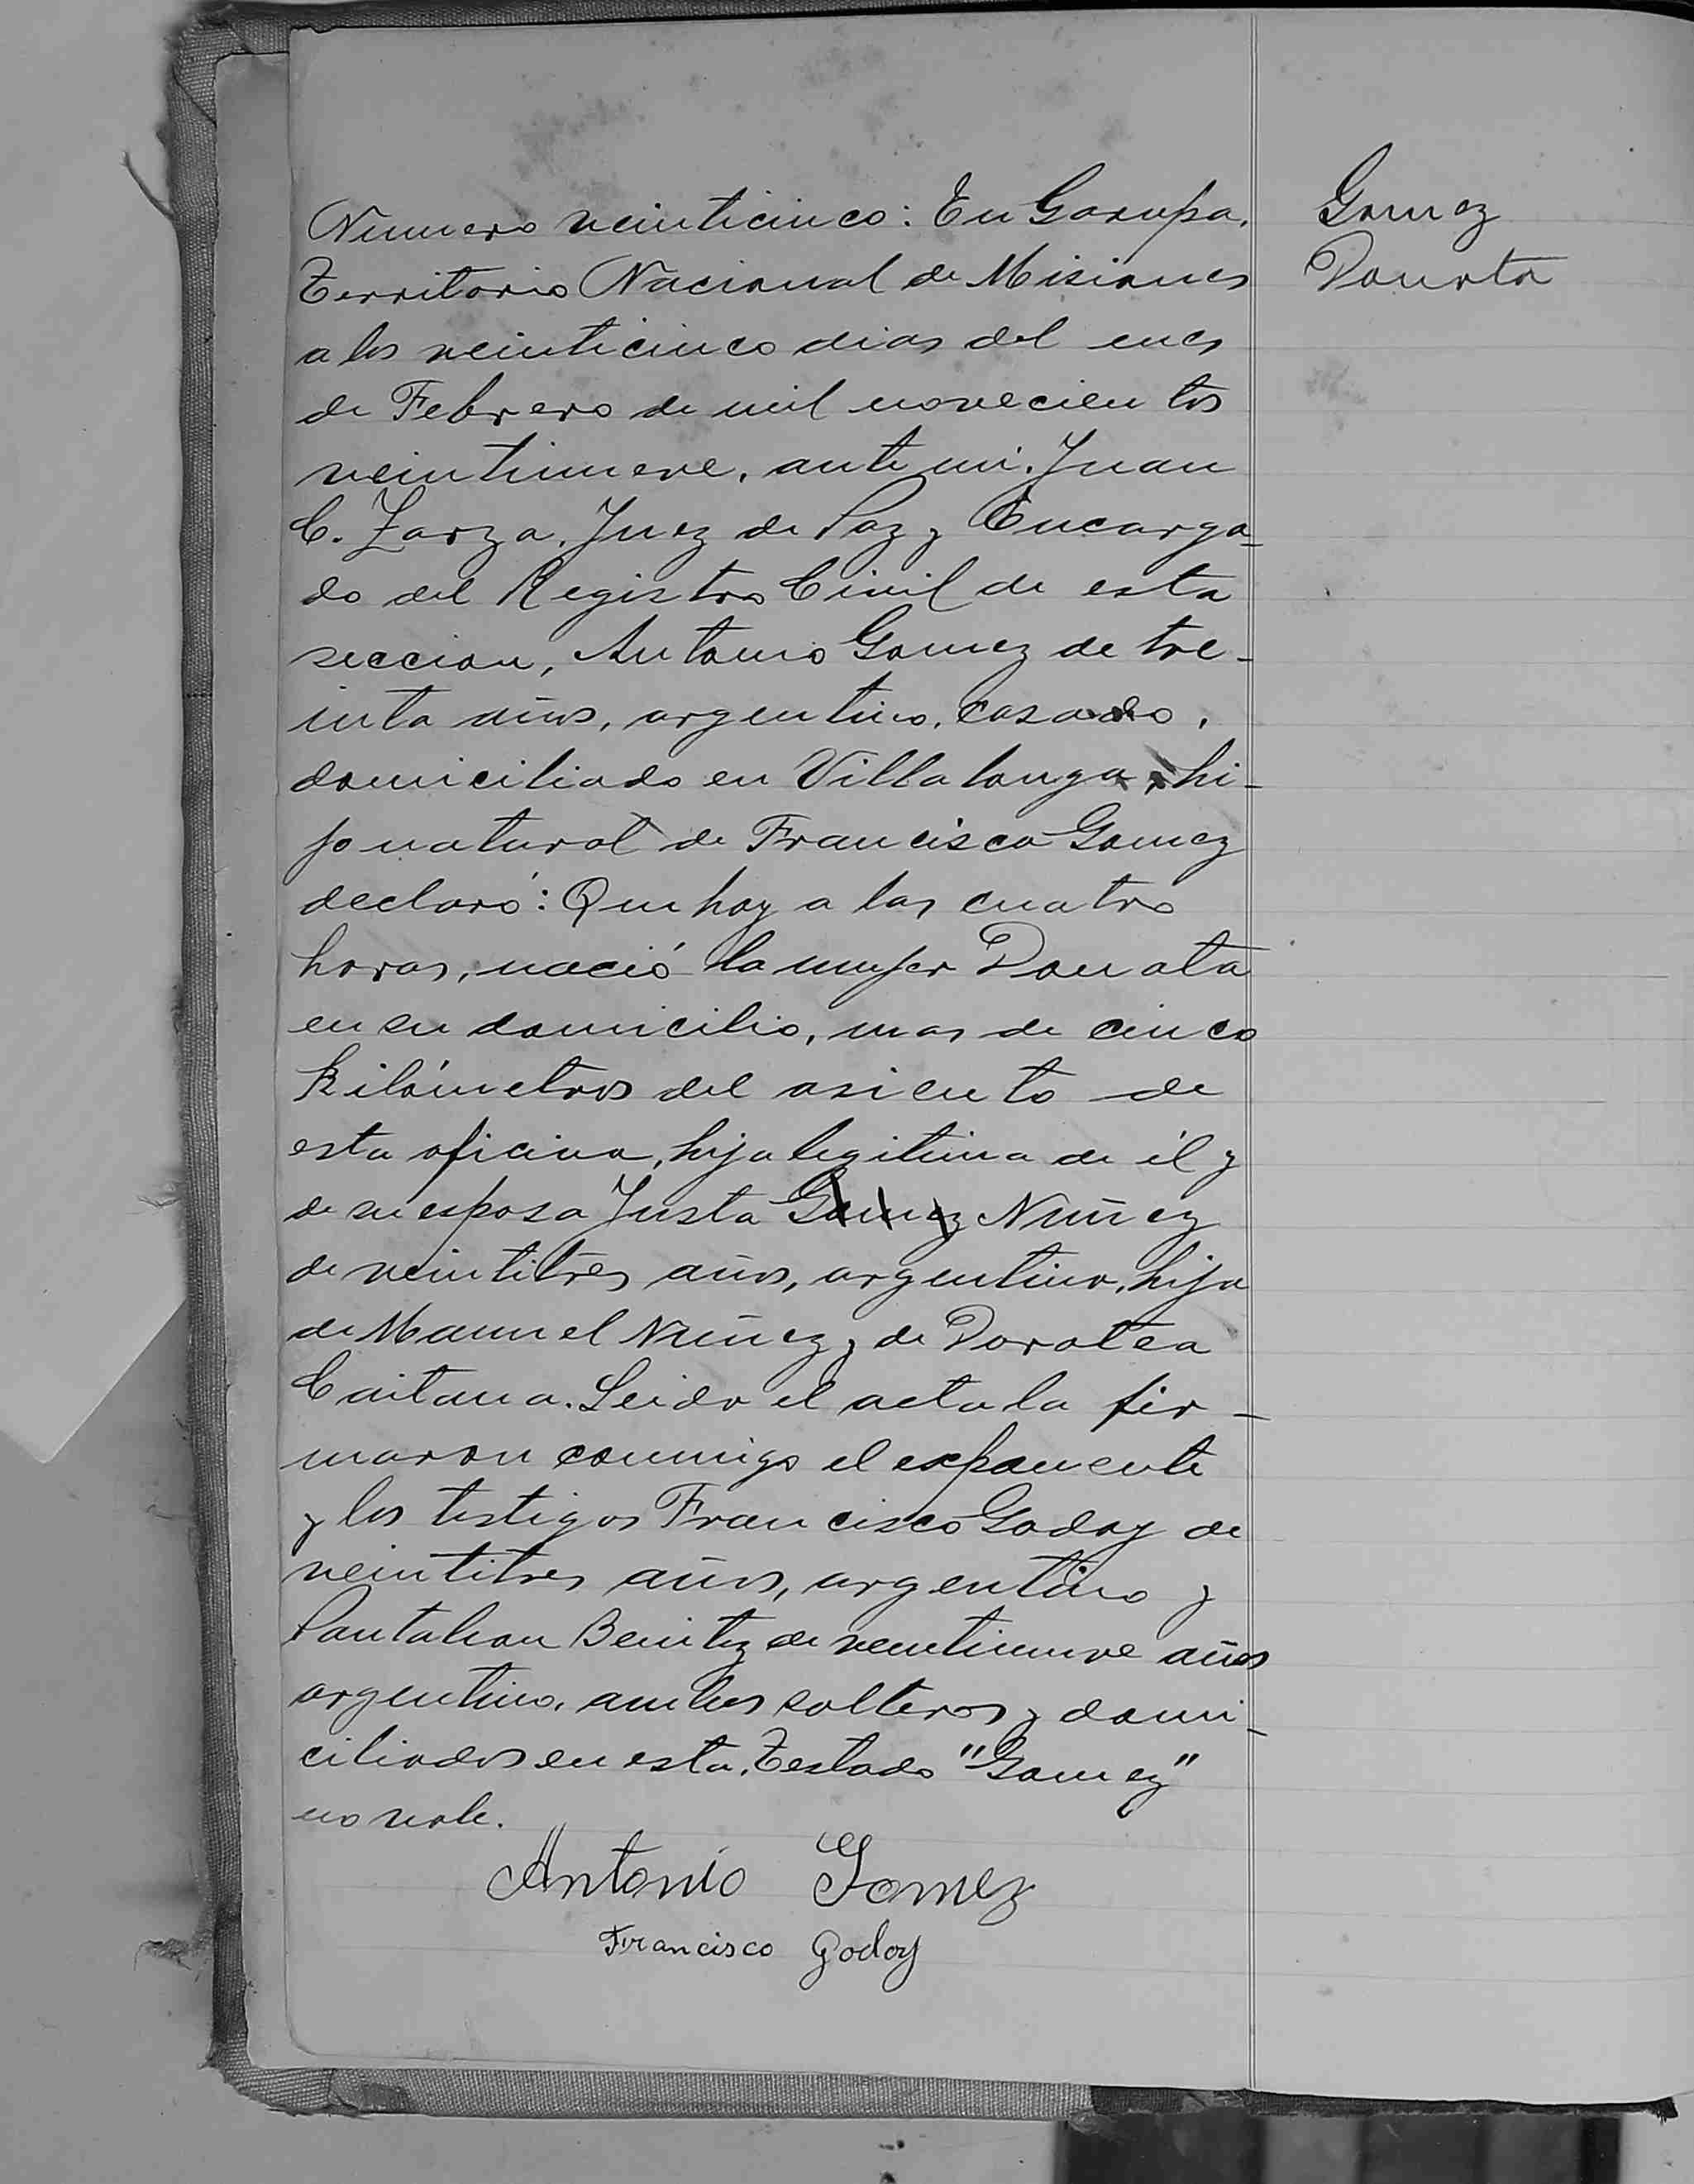 Numero veinticinco: En Garupa,
Territorio Nacional de Misiones
a los veinticinco dias del mes
de Febrero de mil novecientos
veintinueve, ante mi, Juan
C. Zarza, Juez de Paz y Encarga-
do del Registro Civil de esta
seccion, Antonio Gomez de tre-
inta años, argentino, casado,
domiciliado en Villalonga, hi-
jo natural de Francisca Gomez
declaró: Que hoy a las cuatro
horas, nació la mujer Donata
en su domicilio, mas de cinco
kilómetros del asiento de
esta oficina, hija legitima de él y
de su esposa Justa Gomez Nuñez
de veintitres años, argentina, hija
de Manuel Nuñez y de Dorotea
Caitana. Leida el acta la fir-
maron conmigo el exponente
y los testigos Francisco Godoy de
veintitres años, argentino y
Pantaleon Benitez de veintinueve años
argentino, ambos solteros y domi-
ciliados en esta. Testado "Gomez"
no vale.
Antonio Gomez
Francisco Godoy
Gomez
Donata